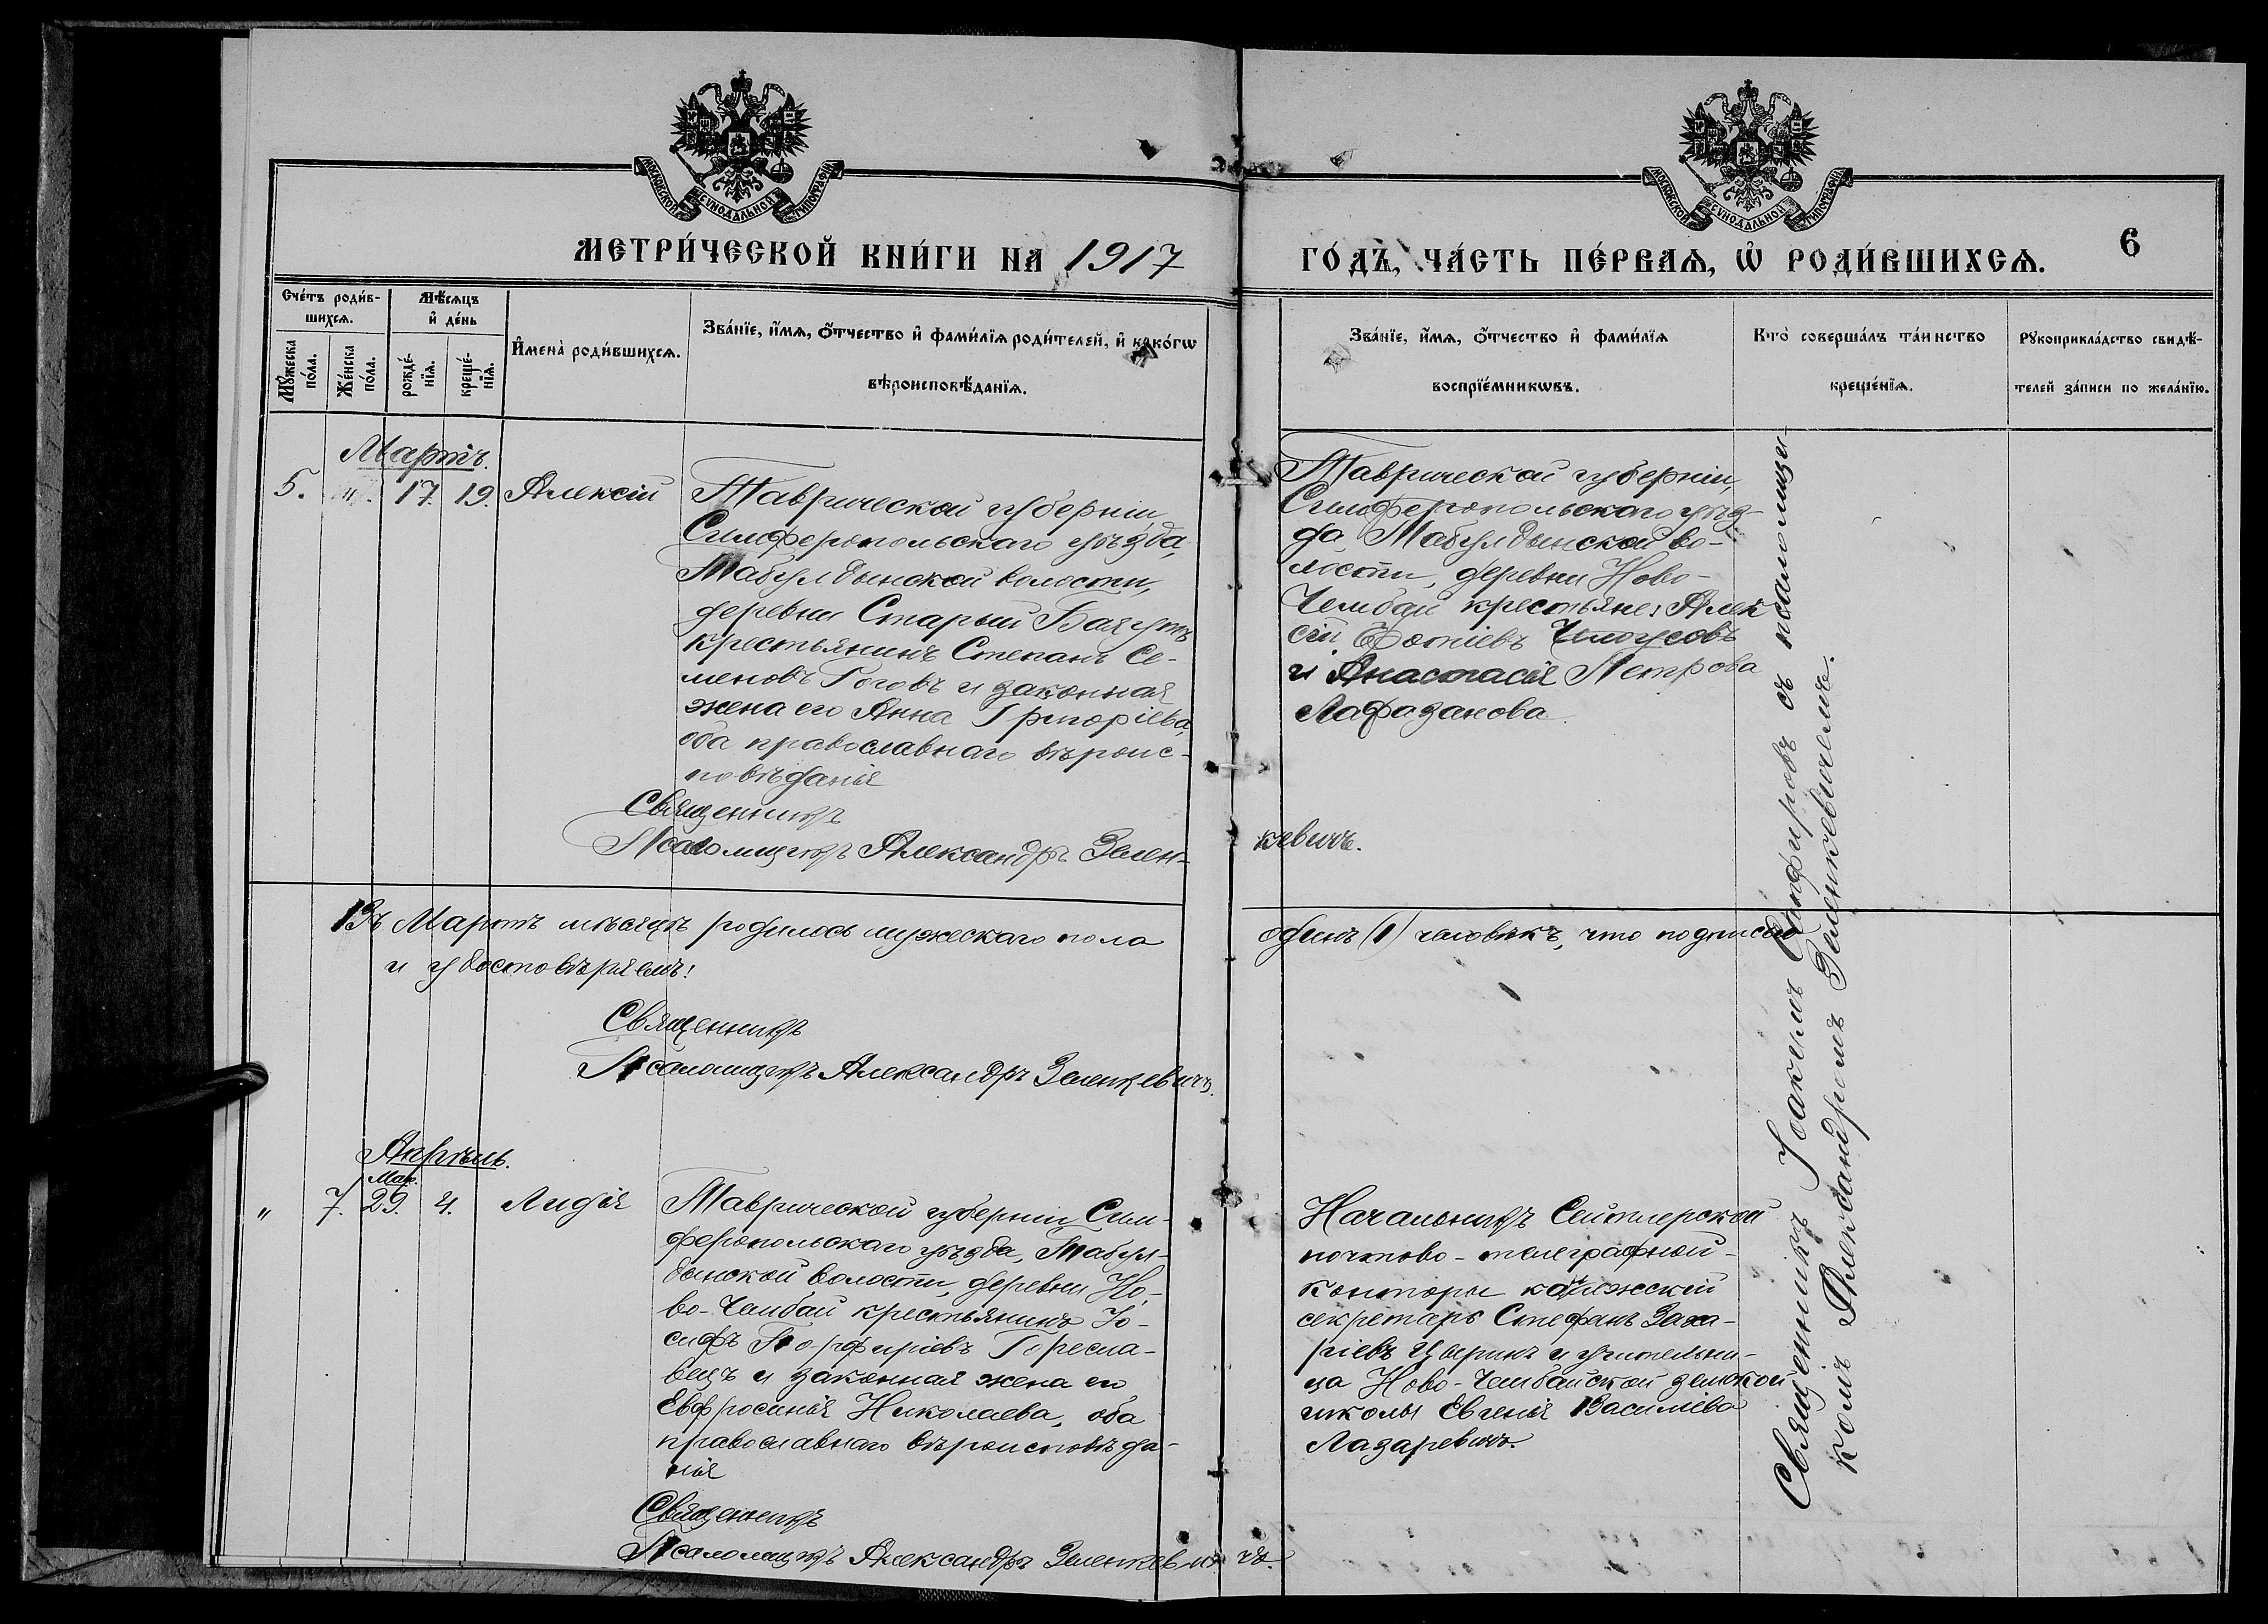 МОСКОВСКОЙ СУНОДАЛЬНОЙ ТИПОГРАФІИ
МОСКОВСКОЙ СУНОДАЛЬНОЙ ТИПОГРАФІИ
МЕТРИ́ЧЕСКОЙ КНИ́ГИ НА 1917
ГО́ДЪ, ЧА́СТЬ ПЕ́РВАѦ, Ѡ҆ РОДИ́ВШИХСѦ.
6
Сче́тъ роди́в-
шихсѧ.
Мѣ́сѧцъ
и҆ де́нь
Мꙋ́жеска
по́ла.
Же́нска
по́ла.
рожде́-
нїѧ.
креще́-
нїѧ.
И҆мена̀ роди́вшихсѧ.
Зва́нїе, и҆́мѧ, ѻ҆́тчество и҆ фами́лїѧ роди́телей, и҆ како́гѡ
вѣроисповѣ́данїѧ.
Зва́нїе, и҆́мѧ, ѻ҆́тчество и҆ фами́лїѧ
воспрїе́мникѡвъ.
Кто̀ соверша́лъ та́инство
креще́нїѧ.
Рꙋкоприкла́дство свидѣ́-
телей за́писи по жела́нїю.
Мартъ.
5. 17. 19. Алексій
Таврической губерніи,
Симферопольскаго уѣзда,
Табулдынской волости,
деревни Старый Баягутъ
крестьянинъ Степанъ Се-
меновъ Гоговъ и законная
жена его Анна Григоріева,
оба православнаго вѣроис-
повѣданія
Священникъ
Псаломщикъ Александръ Зелен-
кевичъ.
Таврической губерніи,
Симферопольскаго уѣз-
да, Табулдынской во-
лости, деревни Ново-
Чембай крестьяне: Алек
сій Фотіевъ
и Анастасія Петрова
Лафазанова.
Въ Мартѣ мѣсяцѣ родилось мужескаго пола
одинъ (1) человѣкъ, что подписью
и удостовѣряемъ:
Священникъ
Псаломщикъ Александръ Зеленкевичъ.
Апрѣль.
Мар.
" 7. 29. 4. Лидія
Таврической губерніи, Сим-
феропольскаго уѣзда, Табул-
дынской волости, деревни Но-
во-Чембай крестьянинъ Іо-
сифъ Порфиріевъ Гересла-
вецъ и законная жена его
Евфросинія Николаева, оба
православнаго вѣроисповѣда-
нія
Священникъ
Псаломщикъ Александръ Зеленкевичъ.
Начальникъ Сейтлерской
почтово-телеграфной
конторы коллежскій
секретарь Стефанъ Заха-
ріевъ Цыринъ и учительни-
ца Ново-Чембайской земской
школы Евгенія Василіева
Лазаревичъ.
Священникъ Іоакимъ съ псаломщи-
комъ Александромъ Зеленкевичемъ.